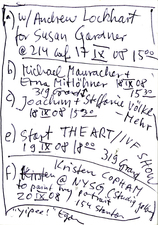 a) w/ Andrew Lockhart
for Susan Gardner
@ 214 Laf 17 IX 08 15 00
b) Michael Mauracher +
Erna Mitlöhner 18 IX 08
319 Grand 15 30
c) Joachim + Steffanie Völker
18 IX 08 15 30 - Mehr
e) Start THE ART//IVF SHOW
19 IX 08 18 00 319 Grand
f) Kristen COPHAM
@ NYSG Studio
to paint my portrait
20 IX 08 / 154 Stanton
"yipee!"